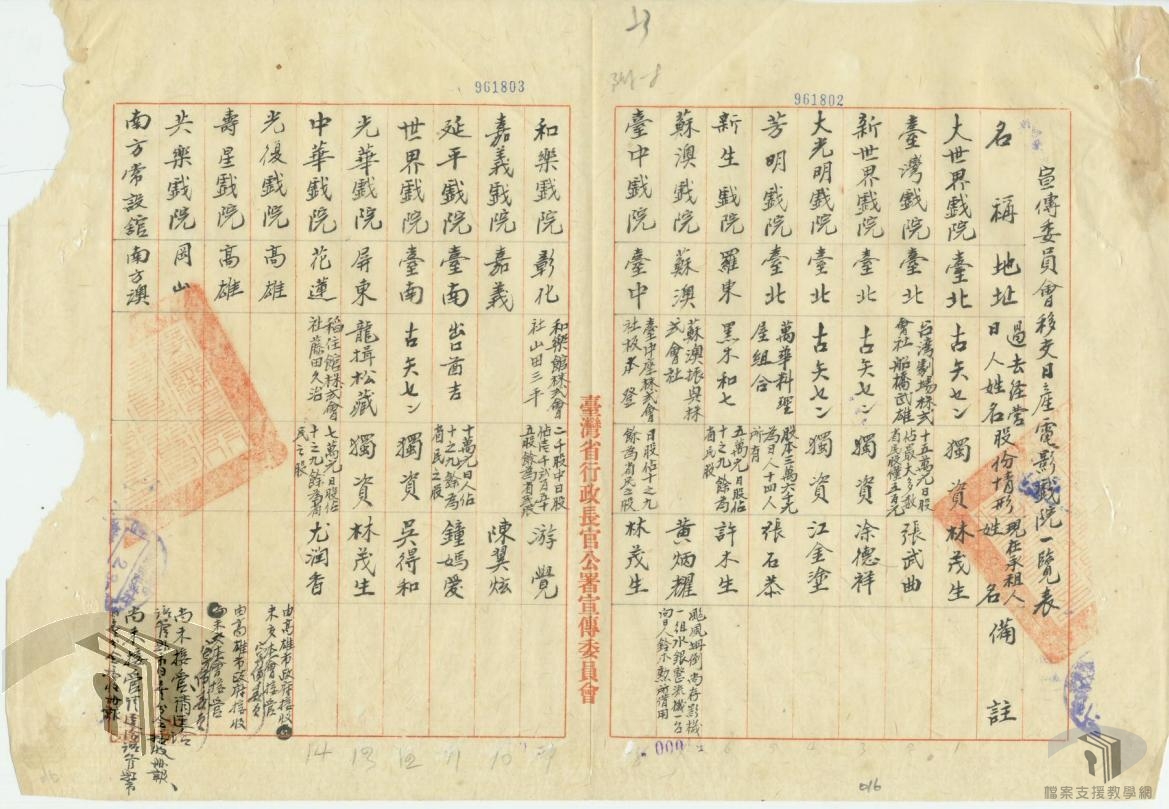 宣傳委員會移交日產電影戲院一覽表
名稱 地址 過去經營日人姓名 股份情形 現在承租人姓名 備註
大世界戲院 臺北 古矢セン 獨資 林茂生
臺灣戲院 臺北 台湾劇場株式會社船橋武雄 十五萬元日股佔最大多数省民股僅五百元 張武曲
新世界戲院 臺北 古矢セン 獨資 涂德祥
大光明戲院 臺北 古矢セン 獨資 江金塗
芳明戲院 臺北 萬華料理屋組合 股本三萬六千元為日人十四人所有 張石恭
新生戲院 羅東 黑木和七 五萬元日股佔十之九餘為省民股 許木生
蘇澳戲院 蘇澳 蘇澳振興株式會社 黃炳耀 颱風坍倒尚存影機一組水銀整流機一台向日人鈴木勲所借用
臺中戲院 臺中 臺中座株式會社坂本登 日股佔十之九餘為省民之股 林茂生
臺灣省行政長官公署宣傳委員會
和樂戲院 彰化 和樂館株式會社山田三平 二千股中日股佔壱千弐百五十五股餘為省民股 游覺
嘉義戲院 嘉義 陳翼炫
延平戲院 臺南 出口酉吉 十萬元日人佔十之九餘為省民之股 鐘媽愛
世界戲院 臺南 古矢セン 獨資 吳得和
光華戲院 屏東 龍揖松藏 獨資 林茂生
中華戲院 花蓮 稻住館株式會社藤田久治 七萬元日股佔十之九餘為省民之股 尤潤香
光復戲院 高雄 由高雄市政府接收未交本會接管
壽星戲院 高雄 由高雄市政府接收未交本會接管
共樂戲院 岡山 尚未接管
南方常設舘 南方澳 尚未接管
961802
961803
016
1 4 6 9 10 11 12 13 14
檔案支援教學網